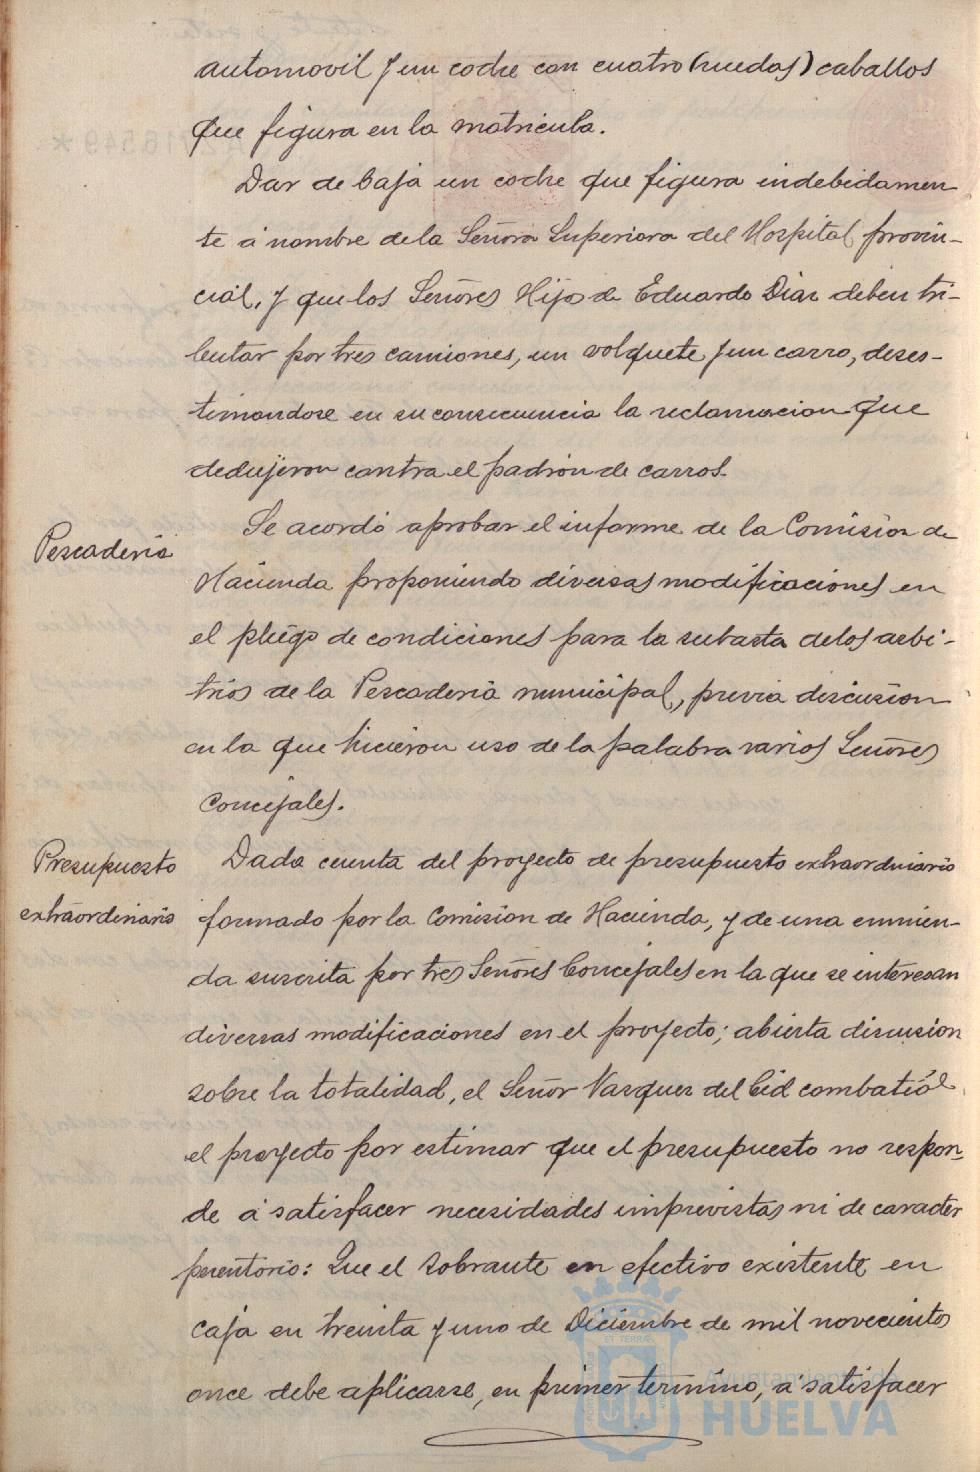 automovil y un coche con cuatro (ruedas) caballos
que figura en la matricula.
Dar de baja un coche que figura indebidamen
te á nombre de la Señora Superiora del Hospital provin-
cial, y que los Señores Hijo de Eduardo Diaz deben tri-
butar por tres camiones, un volquete y un carro, deses-
timandose en su consecuencia la reclamacion que
dedujeron contra el padron de carros.
Pescaderia
Se acordó aprobar el informe de la Comision de
Hacienda proponiendo diversas modificaciones en
el pliego de condiciones para la subasta de los arbi-
trios de la Pescaderia municipal, previa discusion
en la que hicieron uso de la palabra varios Señores
Concejales.
Presupuesto
extraordinario
Dada cuenta del proyecto de presupuesto extraordinario
formado por la Comision de Hacienda, y de una enmien-
da suscrita por tres Señores Concejales en la que se interesan
diversas modificaciones en el proyecto; abierta discusion
sobre la totalidad, el Señor Vazquez del Cid combatió el
el proyecto por estimar que el presupuesto no respon-
de á satisfacer necesidades imprevistas ni de caracter
perentorio: Que el sobrante en efectivo existente en
caja en treinta y uno de Diciembre de mil novecientos
once debe aplicarse, en primer termino, á satisfacer
Ayuntamiento de
HUELVA